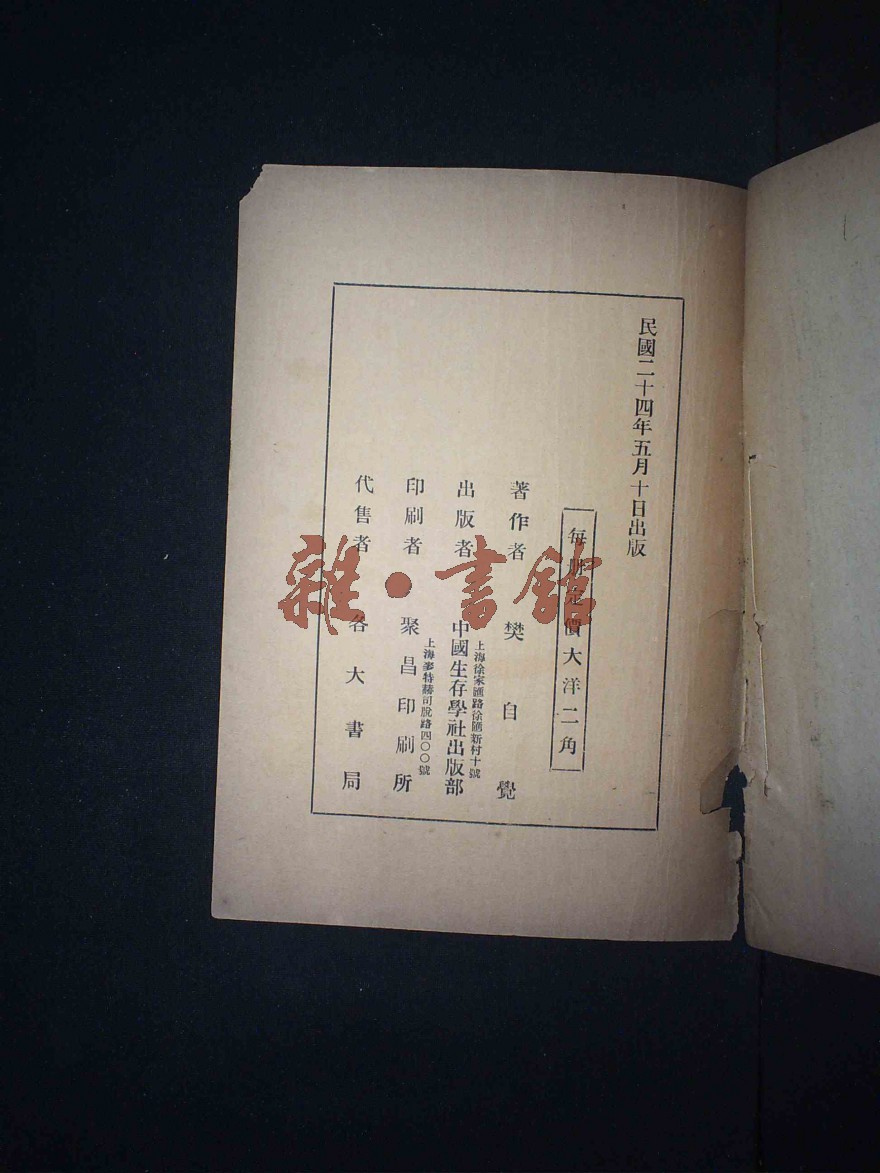 民國二十四年五月十日出版
每冊定價大洋二角
著作者 樊自覺
上海徐家匯路徐匯新村十號
出版者 中國生存學社出版部
上海麥特赫司脫路四〇〇號
印刷者 聚昌印刷所
代售者 各大書局
雜·書館